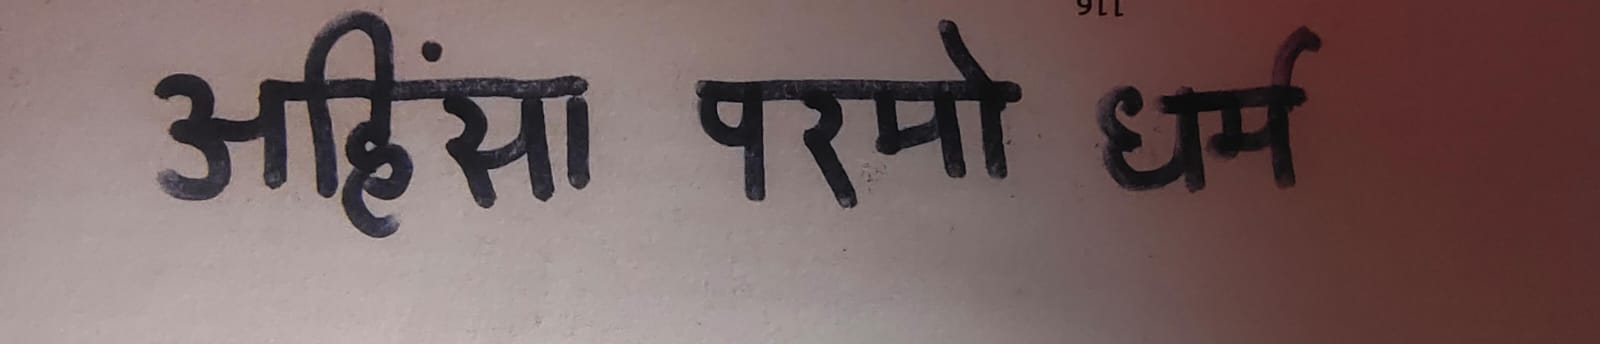 116
अहिंसा परमो धर्म